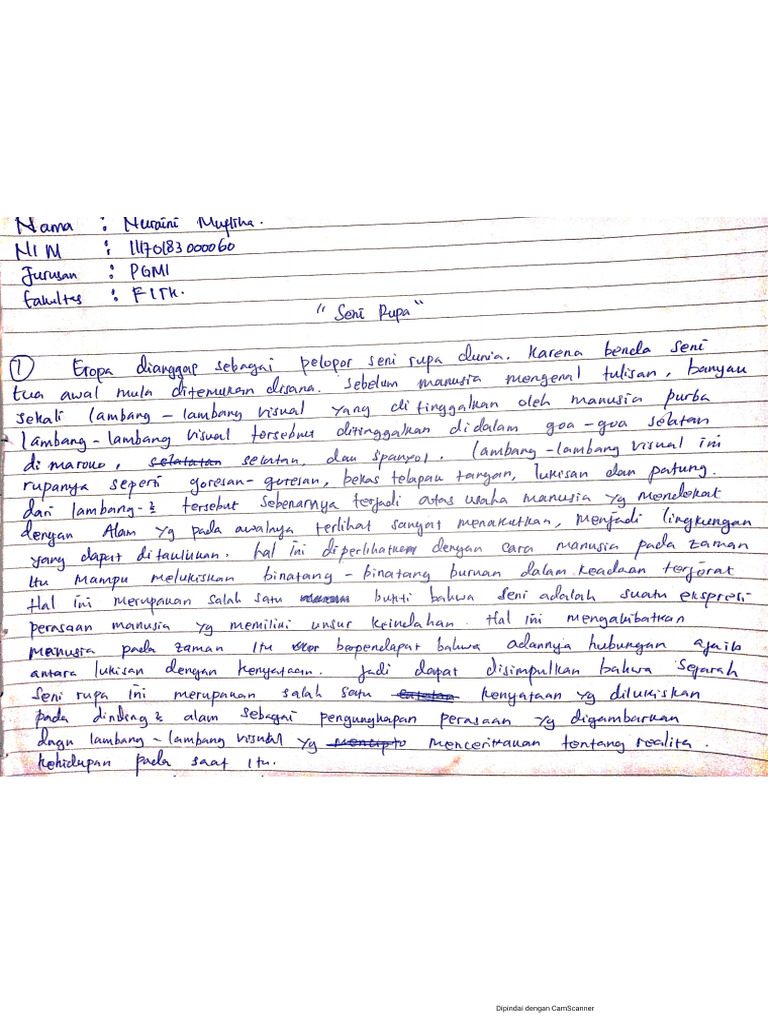 Nama : Nuraini Mufliha.
NIM : 11170183000060
Jurusan : PGMI
Fakultas : FITK.
"Seni Rupa"
① Eropa dianggap sebagai pelopor seni rupa dunia. Karena benda seni
tua awal mula ditemukan disana. Sebelum manusia mengenal tulisan, banyak
sekali lambang-lambang visual yang ditinggalkan oleh manusia purba
lambang-lambang visual tersebut ditinggalkan didalam goa-goa selatan
di maroko, selatan, dan spanyol. lambang-lambang visual ini
rupanya seperti goresan-goresan, bekas telapak tangan, lukisan dan patung.
dari lambang-2 tersebut sebenarnya terjadi atas usaha manusia yg mendekat
dengan Alam yg pada awalnya terlihat sangat menakutkan, menjadi lingkungan
yang dapat ditaklukan. hal ini diperlihatkan dengan cara manusia pada zaman
itu mampu melukiskan binatang-binatang buruan dalam keadaan
Hal ini merupakan salah satu bukti bahwa seni adalah suatu ekspresi
perasaan manusia yg memiliki unsur keindahan. Hal ini mengakibatkan
manusia pada zaman itu berpendapat bahwa adannya hubungan ajaib
antara lukisan dengan kenyataan. Jadi dapat disimpulkan bahwa sejarah
seni rupa ini merupakan salah satu kenyataan yg dilukiskan
pada dinding2 alam sebagai pengungkapan perasaan yg digambarkan
dngn lambang-lambang visual yg menceritakan tentang realita
kehidupan pada saat itu.
Dipindai dengan CamScanner